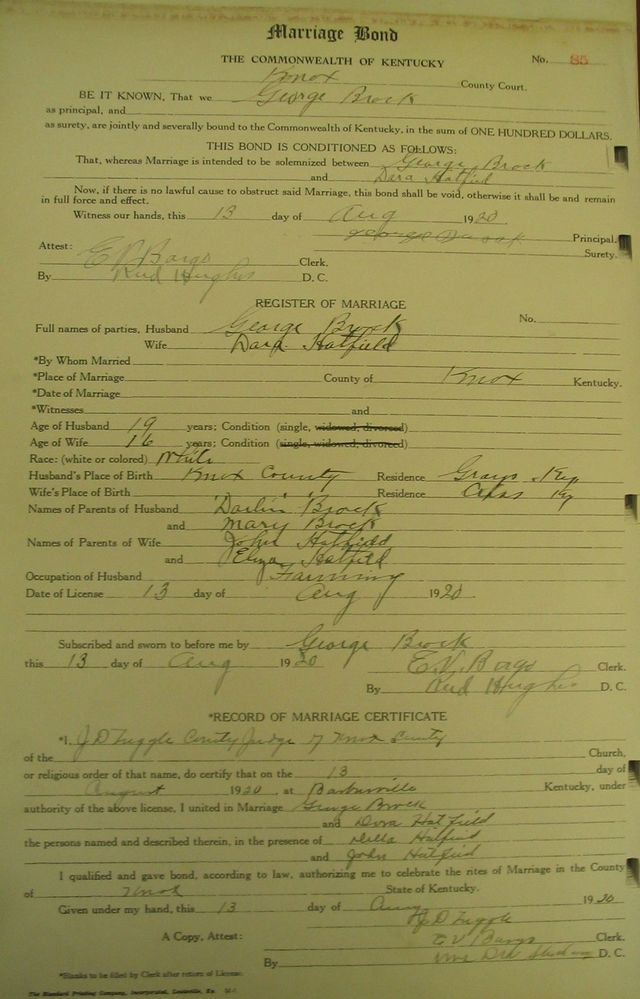 Marriage Bond
THE COMMONWEALTH OF KENTUCKY No. 85
Knox County Court.
BE IT KNOWN, That we George Brock
as principal, and
as surety, are jointly and severally bound to the Commonwealth of Kentucky, in the sum of ONE HUNDRED DOLLARS.
THIS BOND IS CONDITIONED AS FOLLOWS:
That, whereas Marriage is intended to be solemnized between George Brock
and Dara Hatfield
Now, if there is no lawful cause to obstruct said Marriage, this bond shall be void, otherwise it shall be and remain
in full force and effect.
Witness our hands, this 13 day of Aug 1920
George Brock Principal.
Surety.
Attest:
E V Bargo Clerk.
By Reid Hughes D. C.
REGISTER OF MARRIAGE
No.
Full names of parties, Husband George Brock
Wife Dara Hatfield
*By Whom Married
*Place of Marriage County of Knox Kentucky.
*Date of Marriage
*Witnesses and
Age of Husband 19 years; Condition (single, widowed, divorced)
Age of Wife 16 years; Condition (single, widowed, divorced)
Race: (white or colored) White
Husband's Place of Birth Knox County Residence Grays Ky
Wife's Place of Birth " " Residence Ky
Names of Parents of Husband Darlin Brock
and Mary Brock
Names of Parents of Wife John Hatfield
and Eliza Hatfield
Occupation of Husband Farming
Date of License 13 day of Aug 1920
Subscribed and sworn to before me by George Brock
this 13 day of Aug 1920 E. V. Bargo Clerk.
By Reid Hughes D. C.
*RECORD OF MARRIAGE CERTIFICATE
*I, J D Tuggle County Judge of Knox County
of the Church,
or religious order of that name, do certify that on the 13 day of
August 1920, at Barbourville Kentucky, under
authority of the above license, I united in Marriage George Brock
and Dora Hatfield
the persons named and described therein, in the presence of Della Hatfield
and John Hatfield
I qualified and gave bond, according to law, authorizing me to celebrate the rites of Marriage in the County
of Knox State of Kentucky.
Given under my hand, this 13 day of Aug 1920
J D Tuggle
A Copy, Attest: E V Bargo Clerk.
By D. C.
*Blanks to be filled by Clerk after return of License.
The Standard Printing Company, Incorporated, Louisville, Ky.